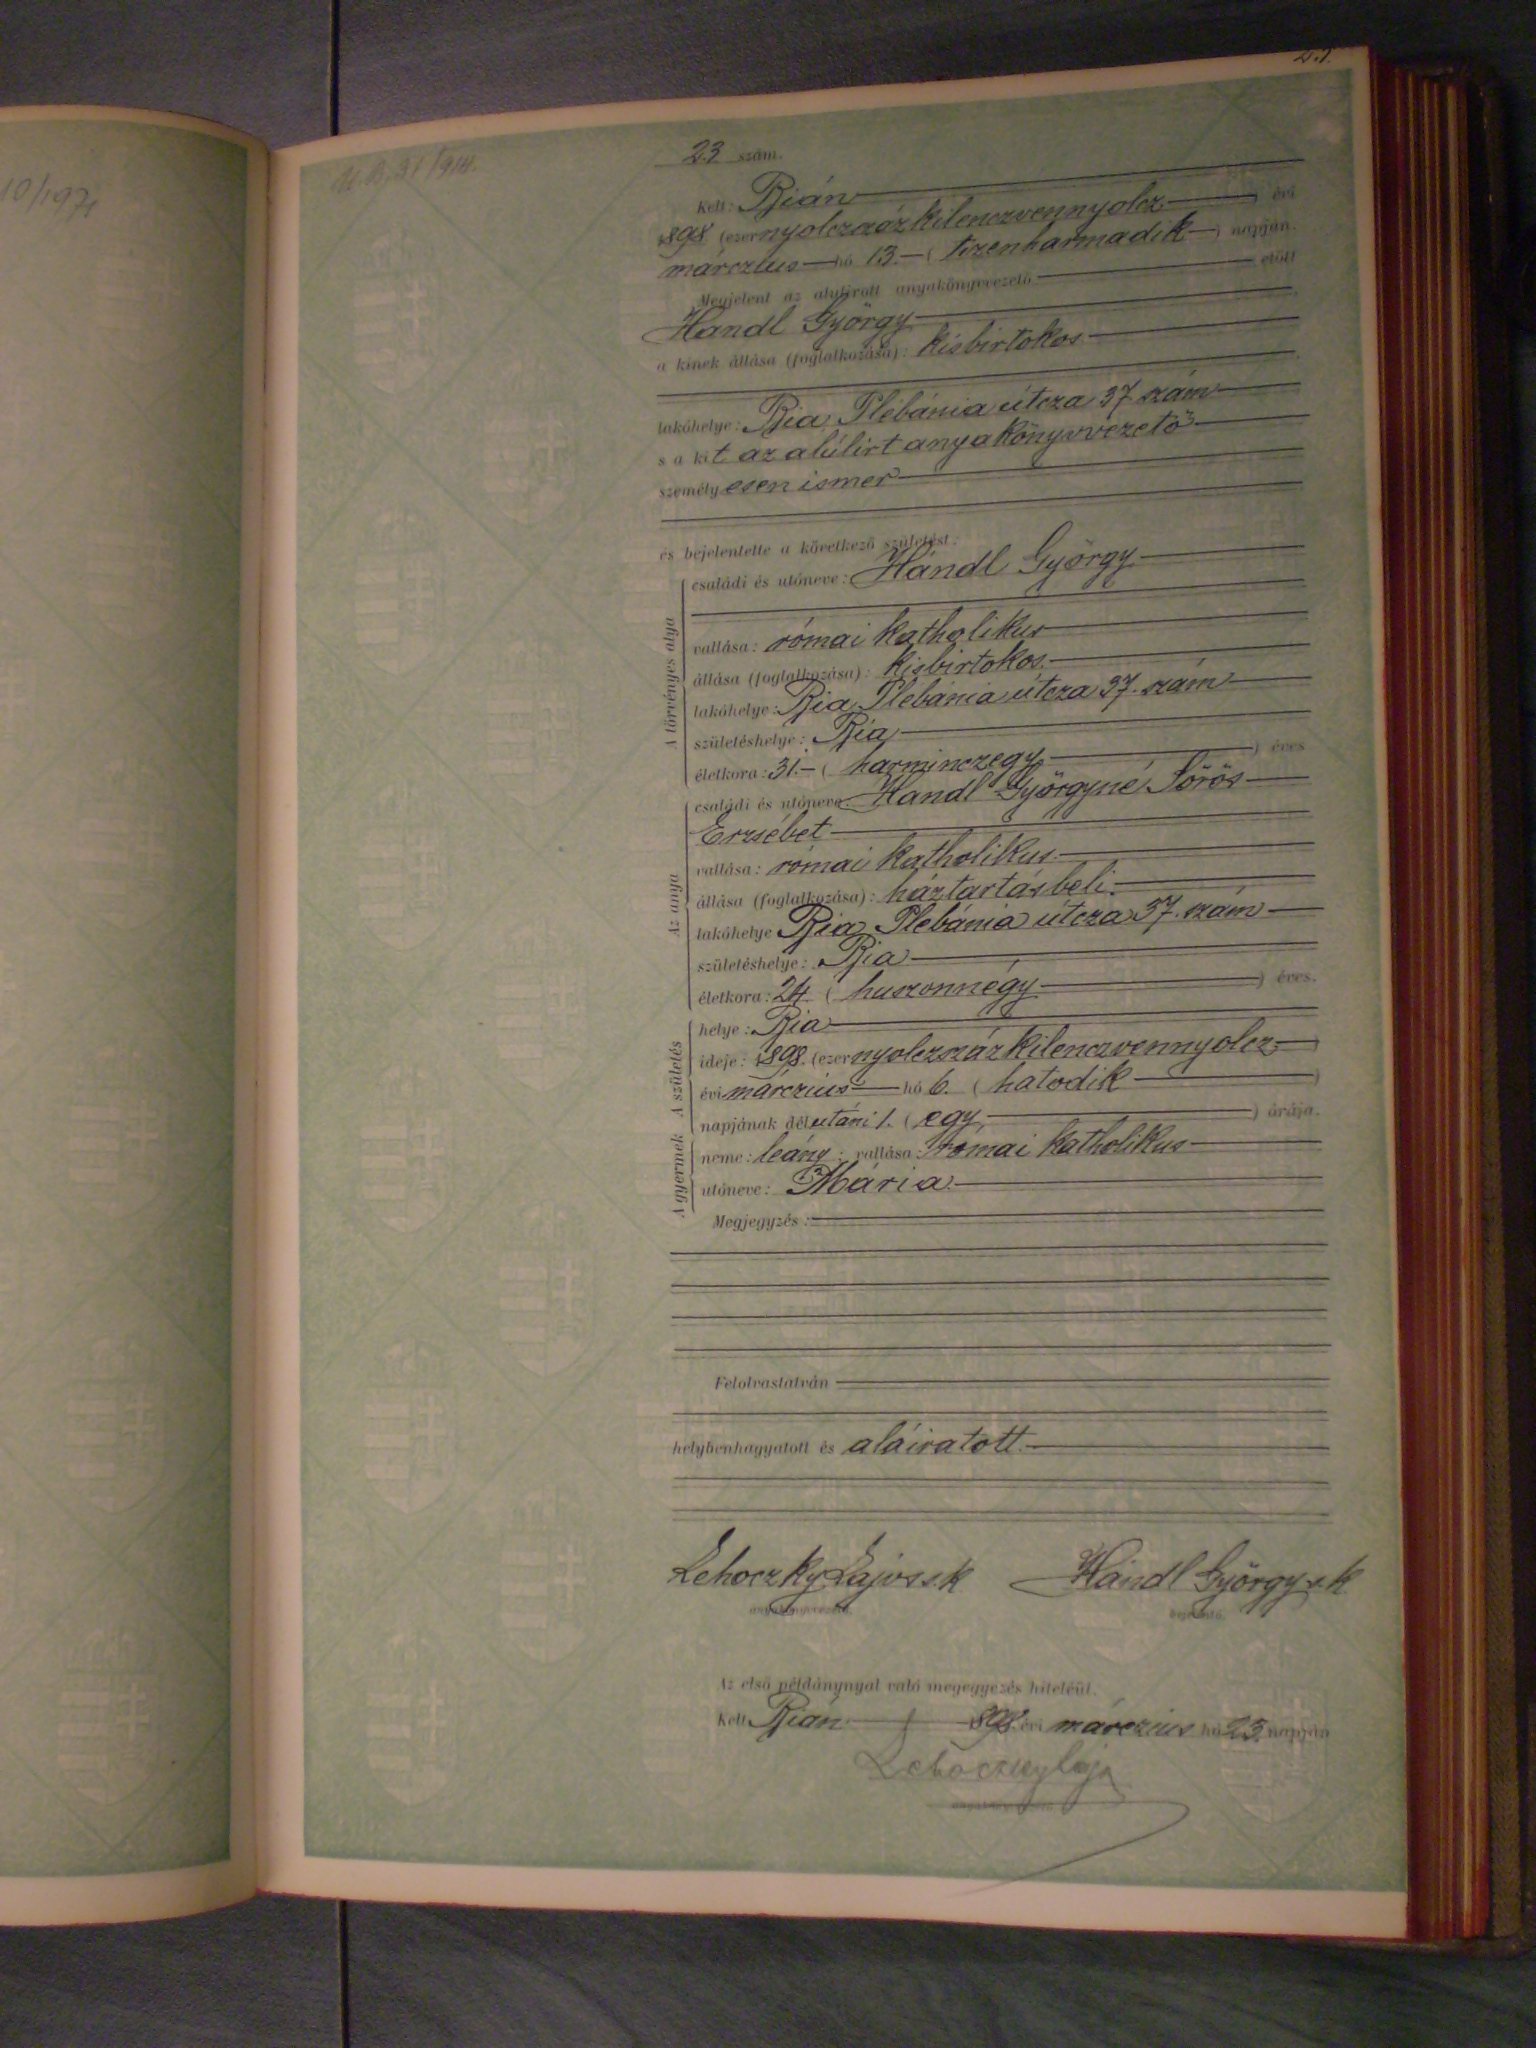 10/1971
37/914.
23 szám.
Kelt: Bián
1898 (ezernyolczszázkilenczvennyolcz) évi
márczius hó 13. (tizenharmadik) napján.
Megjelent az alulírott anyakönyvvezető előtt
Handl György
a kinek állása (foglalkozása): kisbirtokos
lakóhelye: Bia, Plebánia útcza 37 szám
s a kit az alúlirt anyakönyvvezető
személyesen ismer
és bejelentette a következő születést:
A törvényes atya
családi és utóneve: Hándl György
vallása: római katholikus
állása (foglalkozása): kisbirtokos.
lakóhelye: Bia, Plebánia útcza 37. szám
születéshelye: Bia
életkora: 31. (harminczegy) éves
Az anya
családi és utóneve: Handl Györgyné Sörös
Erzsébet
vallása: római katholikus.
állása (foglalkozása): háztartásbeli.
lakóhelye Bia Plebánia útcza 37. szám
születéshelye: Bia
életkora: 24 (huszonnégy) éves.
A születés
helye: Bia
ideje: 1898. (ezernyolczszázkilenczvennyolcz)
évi márczius hó 6. (hatodik)
napjának délutáni 1. (egy) órája.
A gyermek
neme: leány; vallása: római katholikus
utóneve: Mária.
Megjegyzés:
Felolvastatván
helybenhagyatott és aláiratott.
Lehoczky Lajos s.k Hándl György s.k
anyakönyvvezető. bejelentő.
Az első példánynyal való megegyezés hiteléül.
Kelt Bián 1898. évi márczius hó 25. napján
Lehoczky Lajos